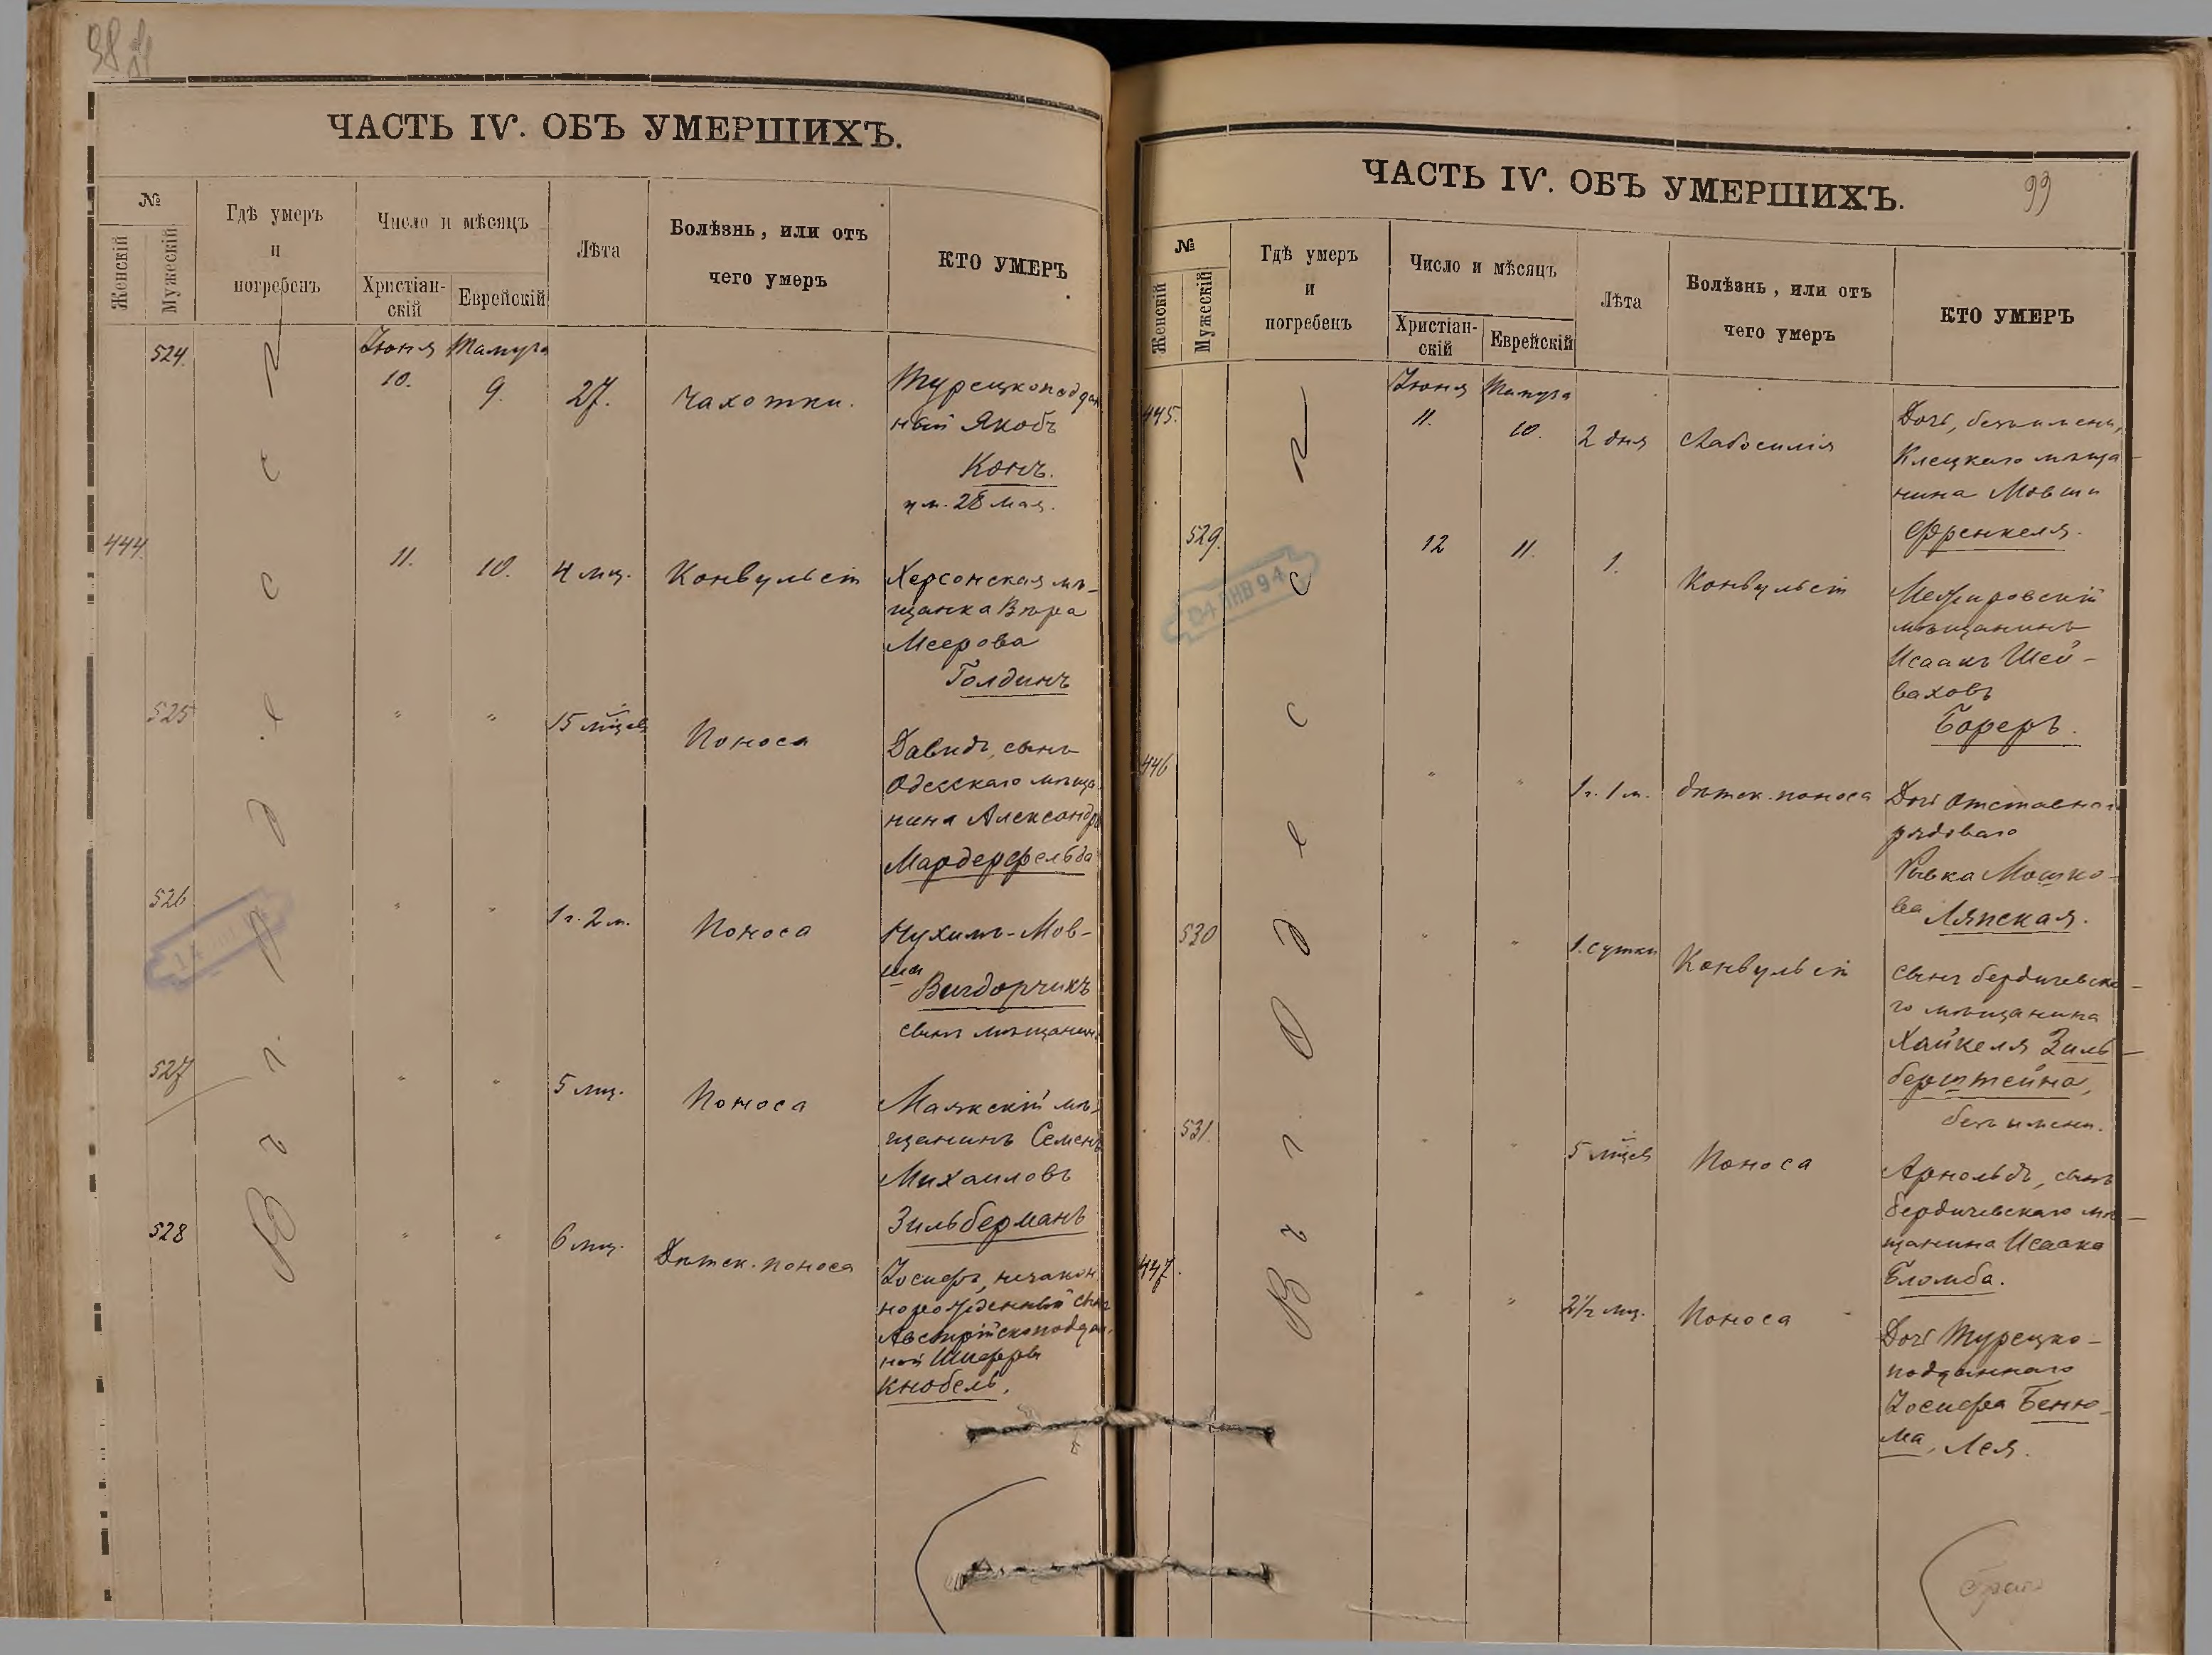 ЧАСТЬ IV. ОБЪ УМЕРШИХЪ.
№
Женскій
Мужескій
Гдѣ умеръ
и
погребенъ
Число и мѣсяцъ
Христіан-
скій
Еврейскій
Лѣта
Болѣзнь, или отъ
чего умеръ
КТО УМЕРЪ
Въ г. Одессѣ
524.
Іюня Тамуза
10. 9. 27. Чахотки.
Турецкоподдан
ный Якобъ
Конъ.
ум. 28 мая.
444.
11. 10. 4 мц. Конвульсіи
Херсонская мѣ-
щанка Вѣра
Меерова
Голдинъ
525
" " 15 мцевъ Поноса
Давидъ, сынъ
Одесскаго мѣща
нина Александра
Мардерфельда
526
" " 1 г. 2 м. Поноса
Нухимъ-Мов-
ша
Вигдорчикъ
сынъ мѣщанина
527
" " 5 мц. Поноса
Маякскій мѣ-
щанинъ Семенъ
Михаиловъ
Зильберманъ
528
" " 6 мц. Дѣтск. поноса
Іосифъ, незакон
норожденный сынъ
Австрійскоподдан
ной Шифры
Кнобель.
ЧАСТЬ IV. ОБЪ УМЕРШИХЪ.
99
№
Женскій
Мужескій
Гдѣ умеръ
и
погребенъ
Число и мѣсяцъ
Христіан-
скій
Еврейскій
Лѣта
Болѣзнь, или отъ
чего умеръ
КТО УМЕРЪ
Въ г. Одессѣ
445.
Іюня Тамуза
11. 10. 2 дня Слабосилія
Дочь, безъ имени,
Клецкаго мѣща-
нина Мовши
Френкеля.
529.
12 11. 1. Конвульсіи
Межировскій
мѣщанинъ
Исаакъ Шей-
ваховъ
Бореръ.
446
" " 1 г. 1 м. Дѣтск. поноса
Дочь отставного
рядоваго
Рывка Мошко-
ва Ляпская.
530
" " 1. сутки Конвульсіи
Сынъ бердичевска-
го мѣщанина
Хайкеля Зиль-
берштейна,
безъ имени.
531.
" " 5 мцевъ Поноса
Арнольдъ, сынъ
бердичевскаго мѣ-
щанина Исаака
Бломба.
447.
" " 2½ мц. Поноса
Дочь Турецко-
подданнаго
Іосифа Беню-
ма, Лея.